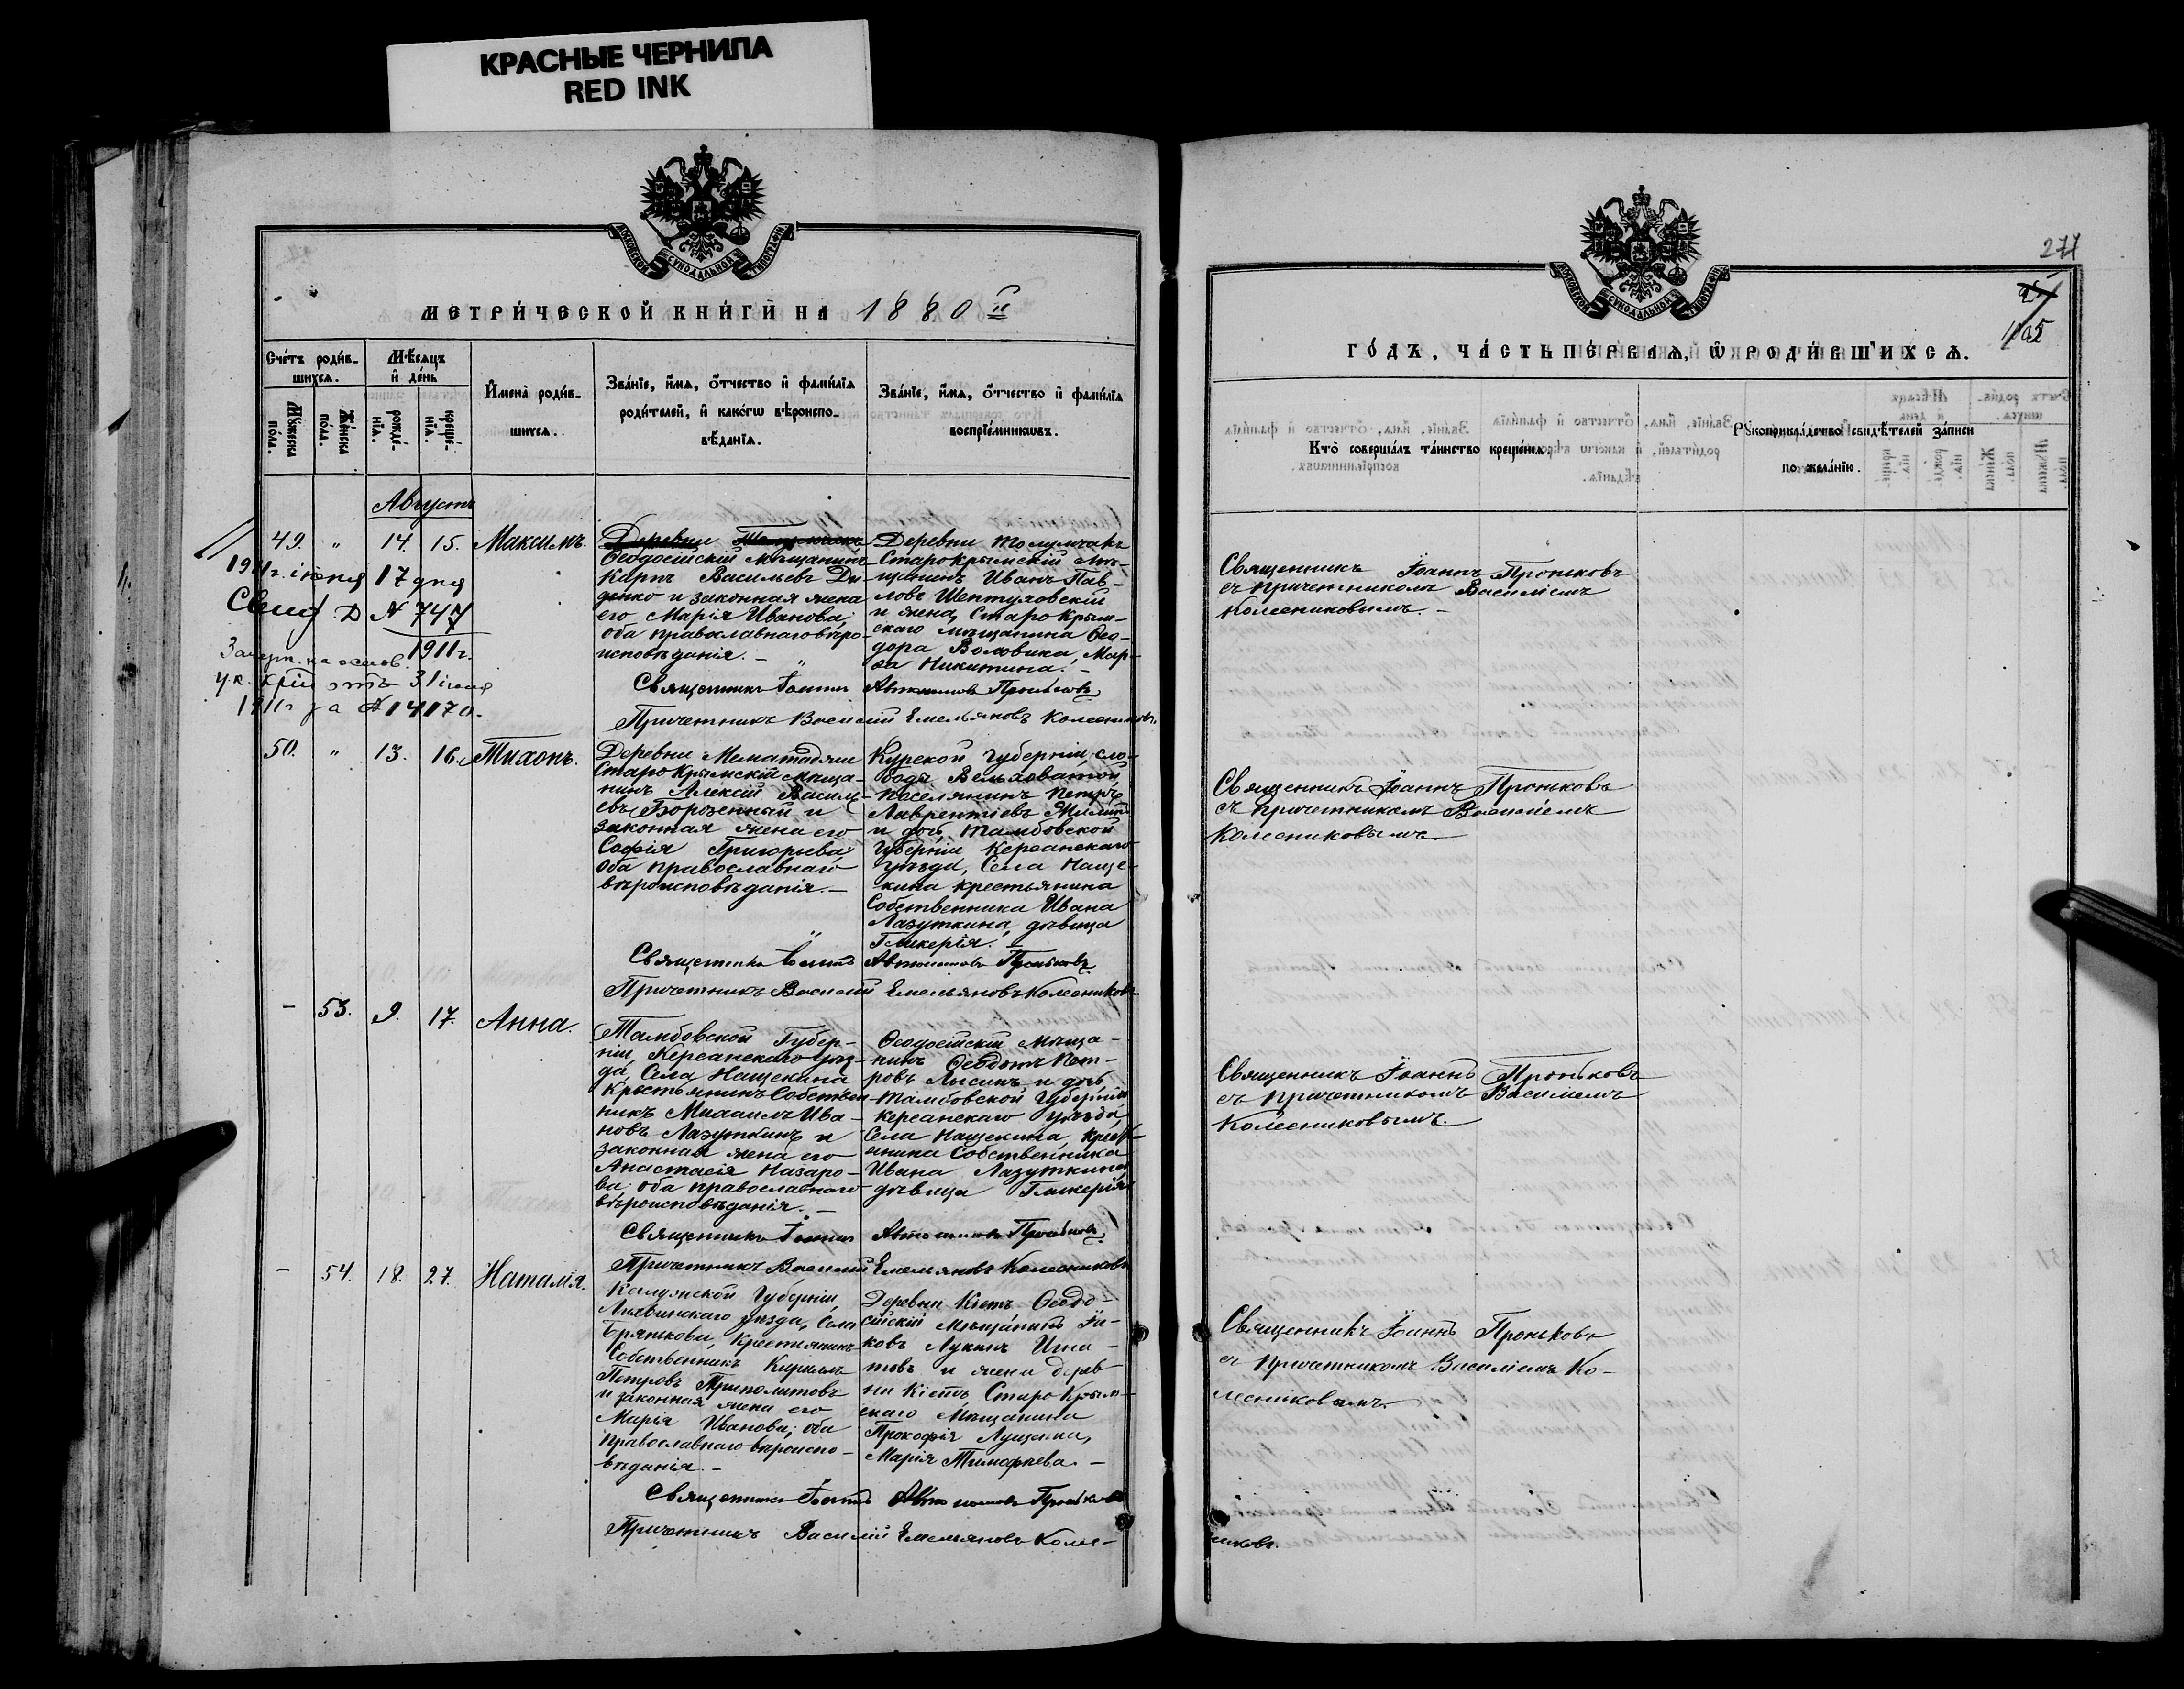 КРАСНЫЕ ЧЕРНИЛА
RED INK
МОСКОВСКОЙ СѴНОДАЛЬНОЙ ТИПОГРАФІИ
МЕТРИ́ЧЕСКОЙ КНИ́ГИ НА 1880 й
Сче́тъ роди́в-
шихсѧ.
Мꙋ́жеска по́ла.
Же́нска по́ла.
Мѣ́сѧцъ
и҆ де́нь
рожде́-
нїѧ.
креще́-
нїѧ.
И҆мена̀ роди́в-
шихсѧ.
Зва́нїе, и҆́мѧ, ѻ҆́тчество и҆ фами́лїѧ
роди́телей, и҆ како́гѡ вѣроиспо-
вѣ́данїѧ.
Зва́нїе, и҆́мѧ, ѻ҆́тчество и҆ фами́лїѧ
воспрїе́мникѡвъ.
Августъ
49. " 14. 15. Максимъ.
Деревни
Ѳеодосійскій мѣщанинъ
Карпъ Васильевъ Ди-
денко и законная жена
его Марія Иванова,
оба православнаго вѣро-
исповѣданія. –
Деревни
Старокрымскій мѣ-
щанинъ Иванъ Пав-
ловъ Шептуховскій
и жена, Старо Крым-
скаго мѣщанина Ѳео-
дора Воловика, Мар-
ѳа Никитина. –
1911 г. іюня 17 дня
Свид. Д № 747
1911 г.
на основ.
31 іюля
1911 г. за № 14170.
Священникъ Іоаннъ Автономовъ Проньковъ
Причетникъ Василій Емельяновъ Колесниковъ.
50. " 13. 16. Тихонъ.
Деревни
Старо Крымскій мѣща-
нинъ Алексій Василь-
евъ Борозенный и
законная жена его
Софія Григорьева,
оба православнаго
вѣроисповѣданія. –
Курской губерніи, сло-
боды
поселянинъ Петръ
Лаврентіевъ
и дочь Тамбовской
губерніи Керсанскаго
уѣзда, Села Наще-
кина крестьянина
Собственника Ивана
Лазуткина, дѣвица
Гликерія. –
Священникъ Іоаннъ Автономовъ Проньковъ
Причетникъ Василій Емельяновъ Колесниковъ
– 53. 9. 17. Анна.
Тамбовской Губер-
ніи, Керсанскаго уѣз-
да, Села Нащекина
Крестьянинъ Собствен-
никъ Михаилъ Ива-
новъ Лазуткинъ и
законная жена его
Анастасія Назаро-
ва, оба православнаго
вѣроисповѣданія. –
Ѳеодосійскій мѣща-
нинъ Ѳеодотъ Пет-
ровъ Лысинъ и дочь
Тамбовской Губерніи
Керсанскаго уѣзда,
Села Нащекина, Крест-
янина Собственника
Ивана Лазуткина,
дѣвица Гликерія
Священникъ Іоаннъ Автономовъ Проньковъ
Причетникъ Василій Емельяновъ Колесниковъ
– 54. 18. 27. Наталія.
Калужской Губерніи,
Лихвинскаго уѣзда, Села
Крестьянинъ
Собственникъ Кириллъ
Петровъ
и законная жена его
Марія Иванова; оба
православнаго вѣроиспо-
вѣданія. –
Деревни Кіетъ Ѳеодо-
сійскій Мѣщанинъ Іа-
ковъ Лукинъ Игна-
товъ и жена дерев-
ни Кіетъ Старо Крым-
скаго Мѣщанина
Прокофія Лущика,
Марія Тимофѣева. –
Священникъ Іоаннъ Автономовъ Проньковъ
Причетникъ Василій Емельяновъ Колес-
277
105
МОСКОВСКОЙ СѴНОДАЛЬНОЙ ТИПОГРАФІИ
ГО́ДЪ, ЧА́СТЬ ПЕ́РВАѦ, Ѡ҆ РОДИ́ВШИХСѦ.
Кто̀ соверша́лъ та́инство креще́нїѧ.
Рꙋкоприкла́дство свидѣ́телей за́писи
по жела́нїю.
Священникъ Іоаннъ Проньковъ
съ причетникомъ Василіемъ
Колесниковымъ. –
Священникъ Іоаннъ Проньковъ
съ причетникомъ Василіемъ
Колесниковымъ
Священникъ Іоаннъ Проньковъ
съ причетникомъ Василіемъ
Колесниковымъ.
Священникъ Іоаннъ Проньковъ
съ причетникомъ Василіемъ Ко-
лесниковымъ.
никовъ.